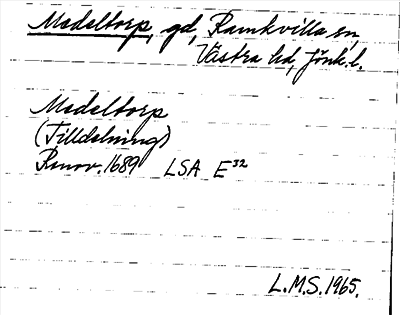 Medeltorp, gd, Ramkvilla sn,
Västra hd, Jönk.l.
Medeltorp
(Tilldelning)
Renov. 1689 LSA E³²
L.M.S. 1965.